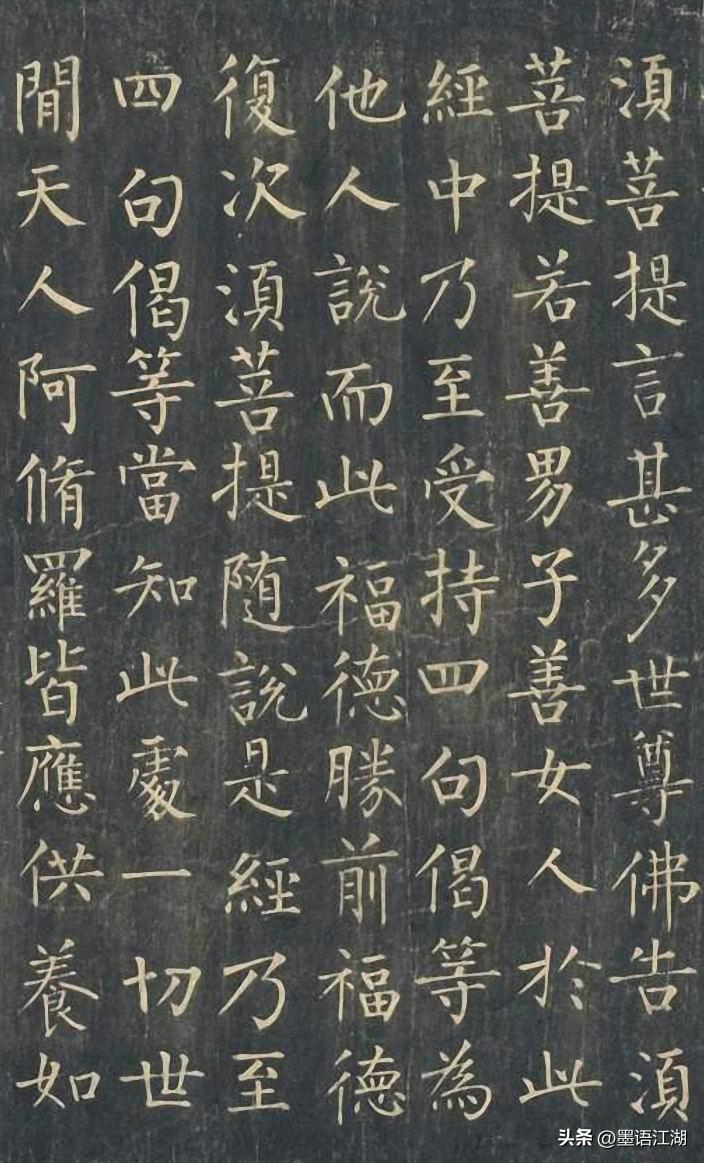 須菩提言甚多世尊佛告須
菩提若善男子善女人於此
經中乃至受持四句偈等為
他人說而此福德勝前福德
復次須菩提随說是經乃至
四句偈等當知此處一切世
間天人阿脩羅皆應供養如
头条 @墨语江湖